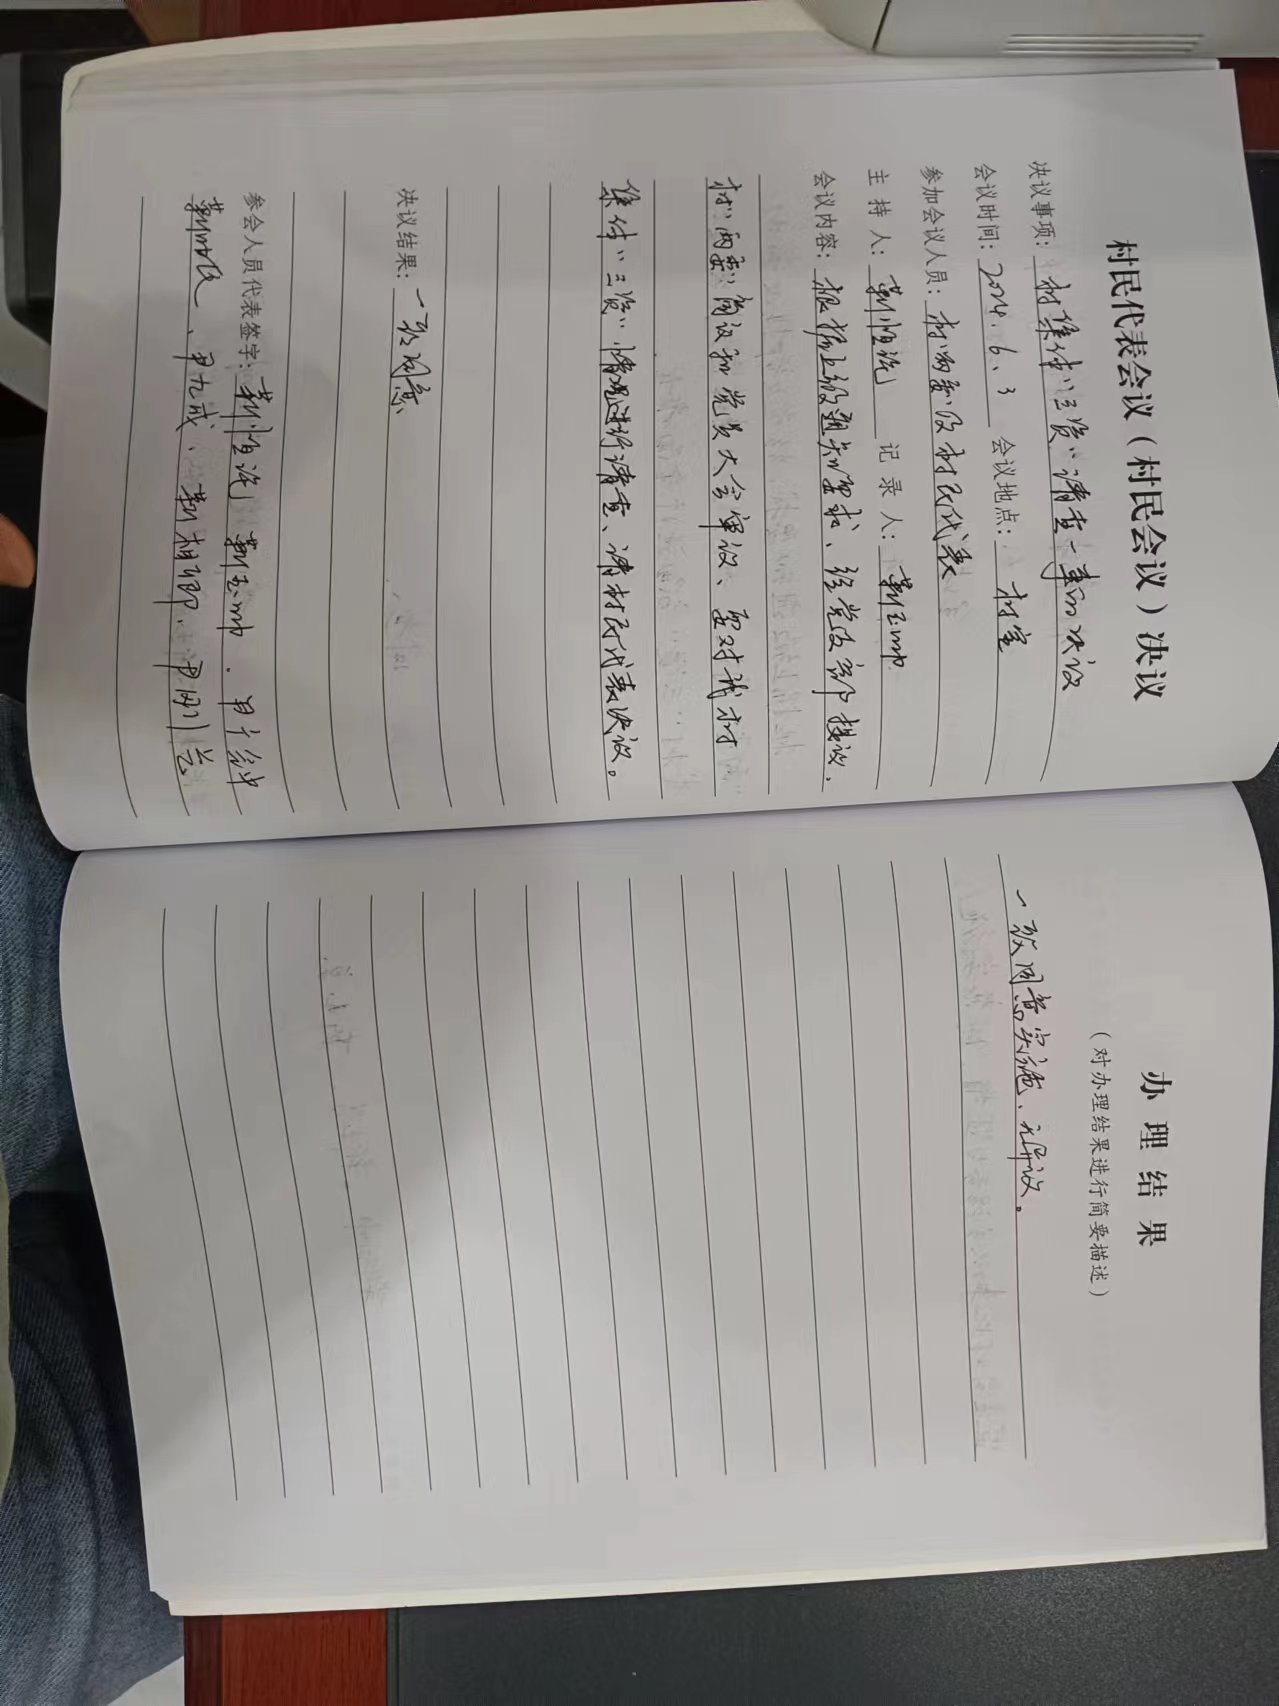 村民代表会议（村民会议）决议
决议事项：村集体“三资”清查一事的决议
会议时间：2024.6.3 会议地点：村室
参加会议人员：村“两委”及村民代表
主持人：靳恒 记录人：靳玉帅
会议内容：根据上级通知要求、经党支部提议、
村“两委”商议和党员大会审议、要对我村
集体“三资”情况进行清查、请村民代表决议。
决议结果：一致同意
参会人员代表签字：靳恒 靳玉帅、尹
靳、尹九成、靳相、尹
办理结果
（对办理结果进行简要描述）
一致同意实施、无异议。